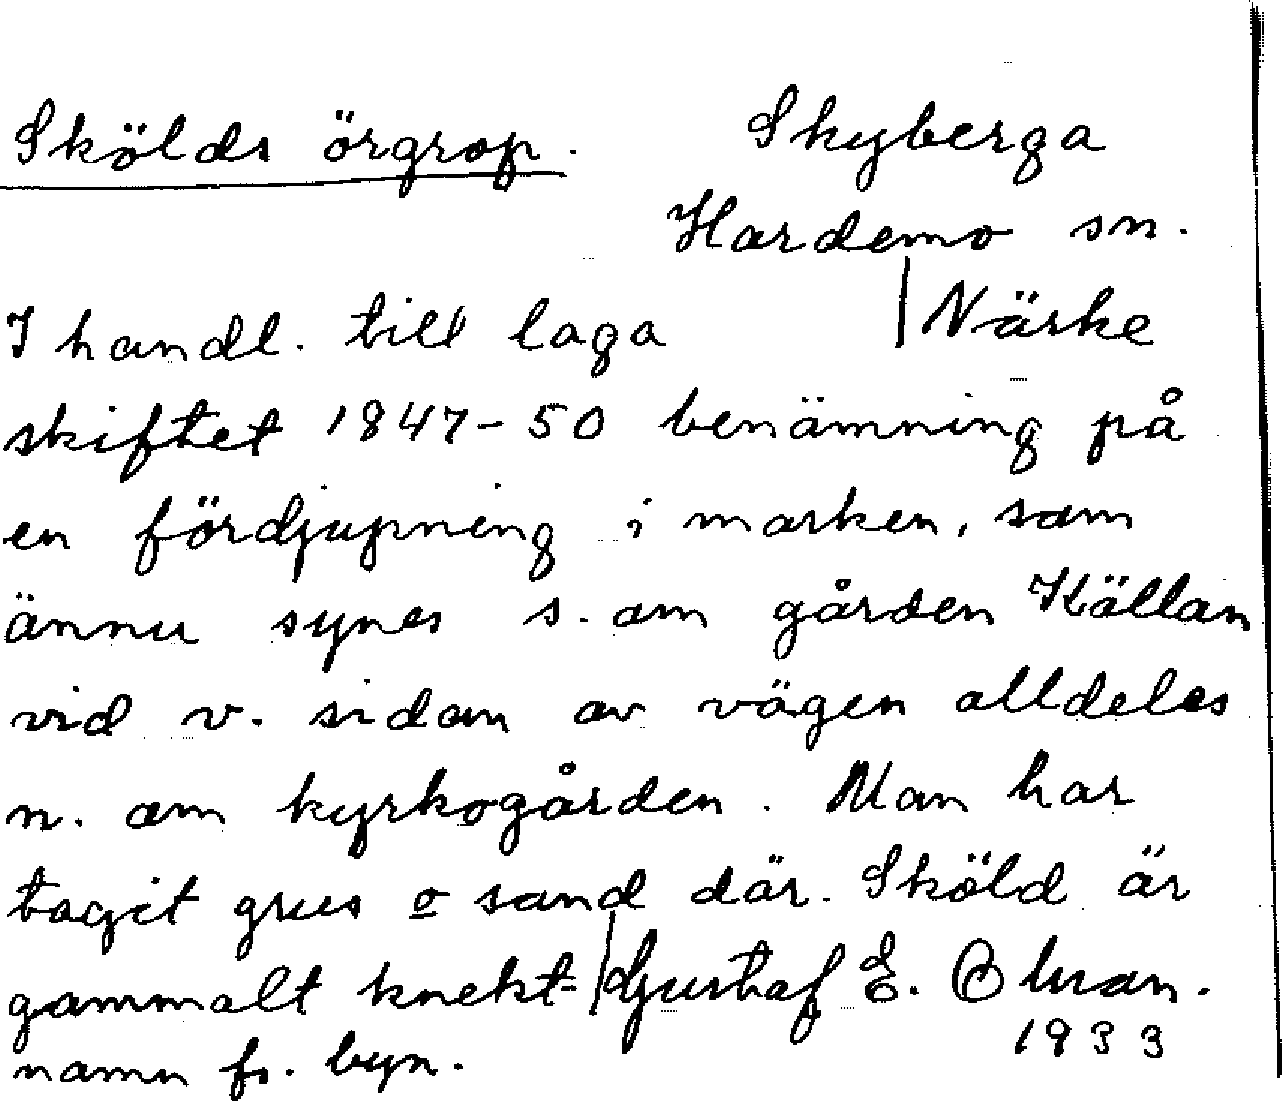 Skölds örgrop.
Skyberga
Hardemo sn.
Närke
I handl. till laga
skiftet 1847-50 benämning på
en fördjupning i marken, som
ännu synes s. om gården Källan
vid v. sidan av vägen alldeles
n. om kyrkogården. Man har
tagit grus o sand där. Sköld är
gammalt knekt-
namn fr. byn.
Gustaf E. Ohman.
1933